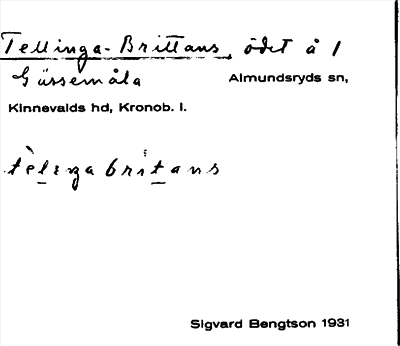 Tellinga-Brittans, ödet å 1
Gässemåla Almundsryds sn,
Kinnevalds hd, Kronob. l.
tèliŋabritans
Sigvard Bengtson 1931